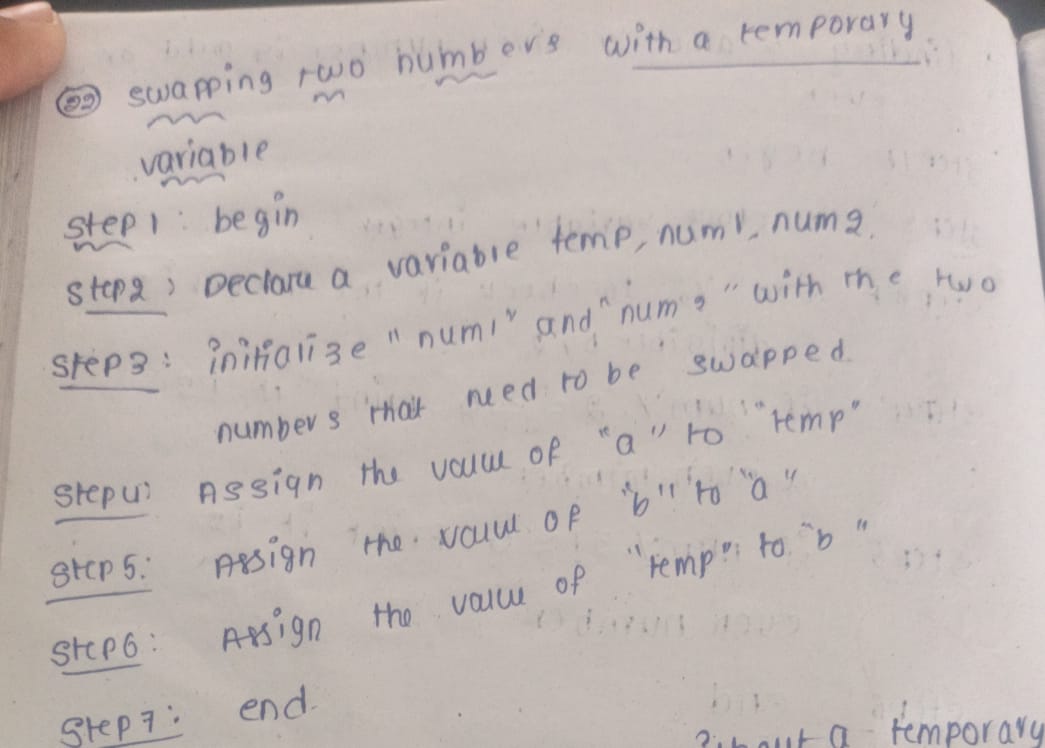 22 swapping two numbers with a temporary
variable
Step 1: begin
Step 2: Declare a variable temp, num1, num2.
Step 3: initialize "num1" and "num2" with the two
numbers that need to be swapped
Step 4: Assign the value of "a" to "temp"
Step 5: Assign the value of "b" to "a"
Step 6: Assign the value of "temp" to "b"
Step 7: end.
a temporary